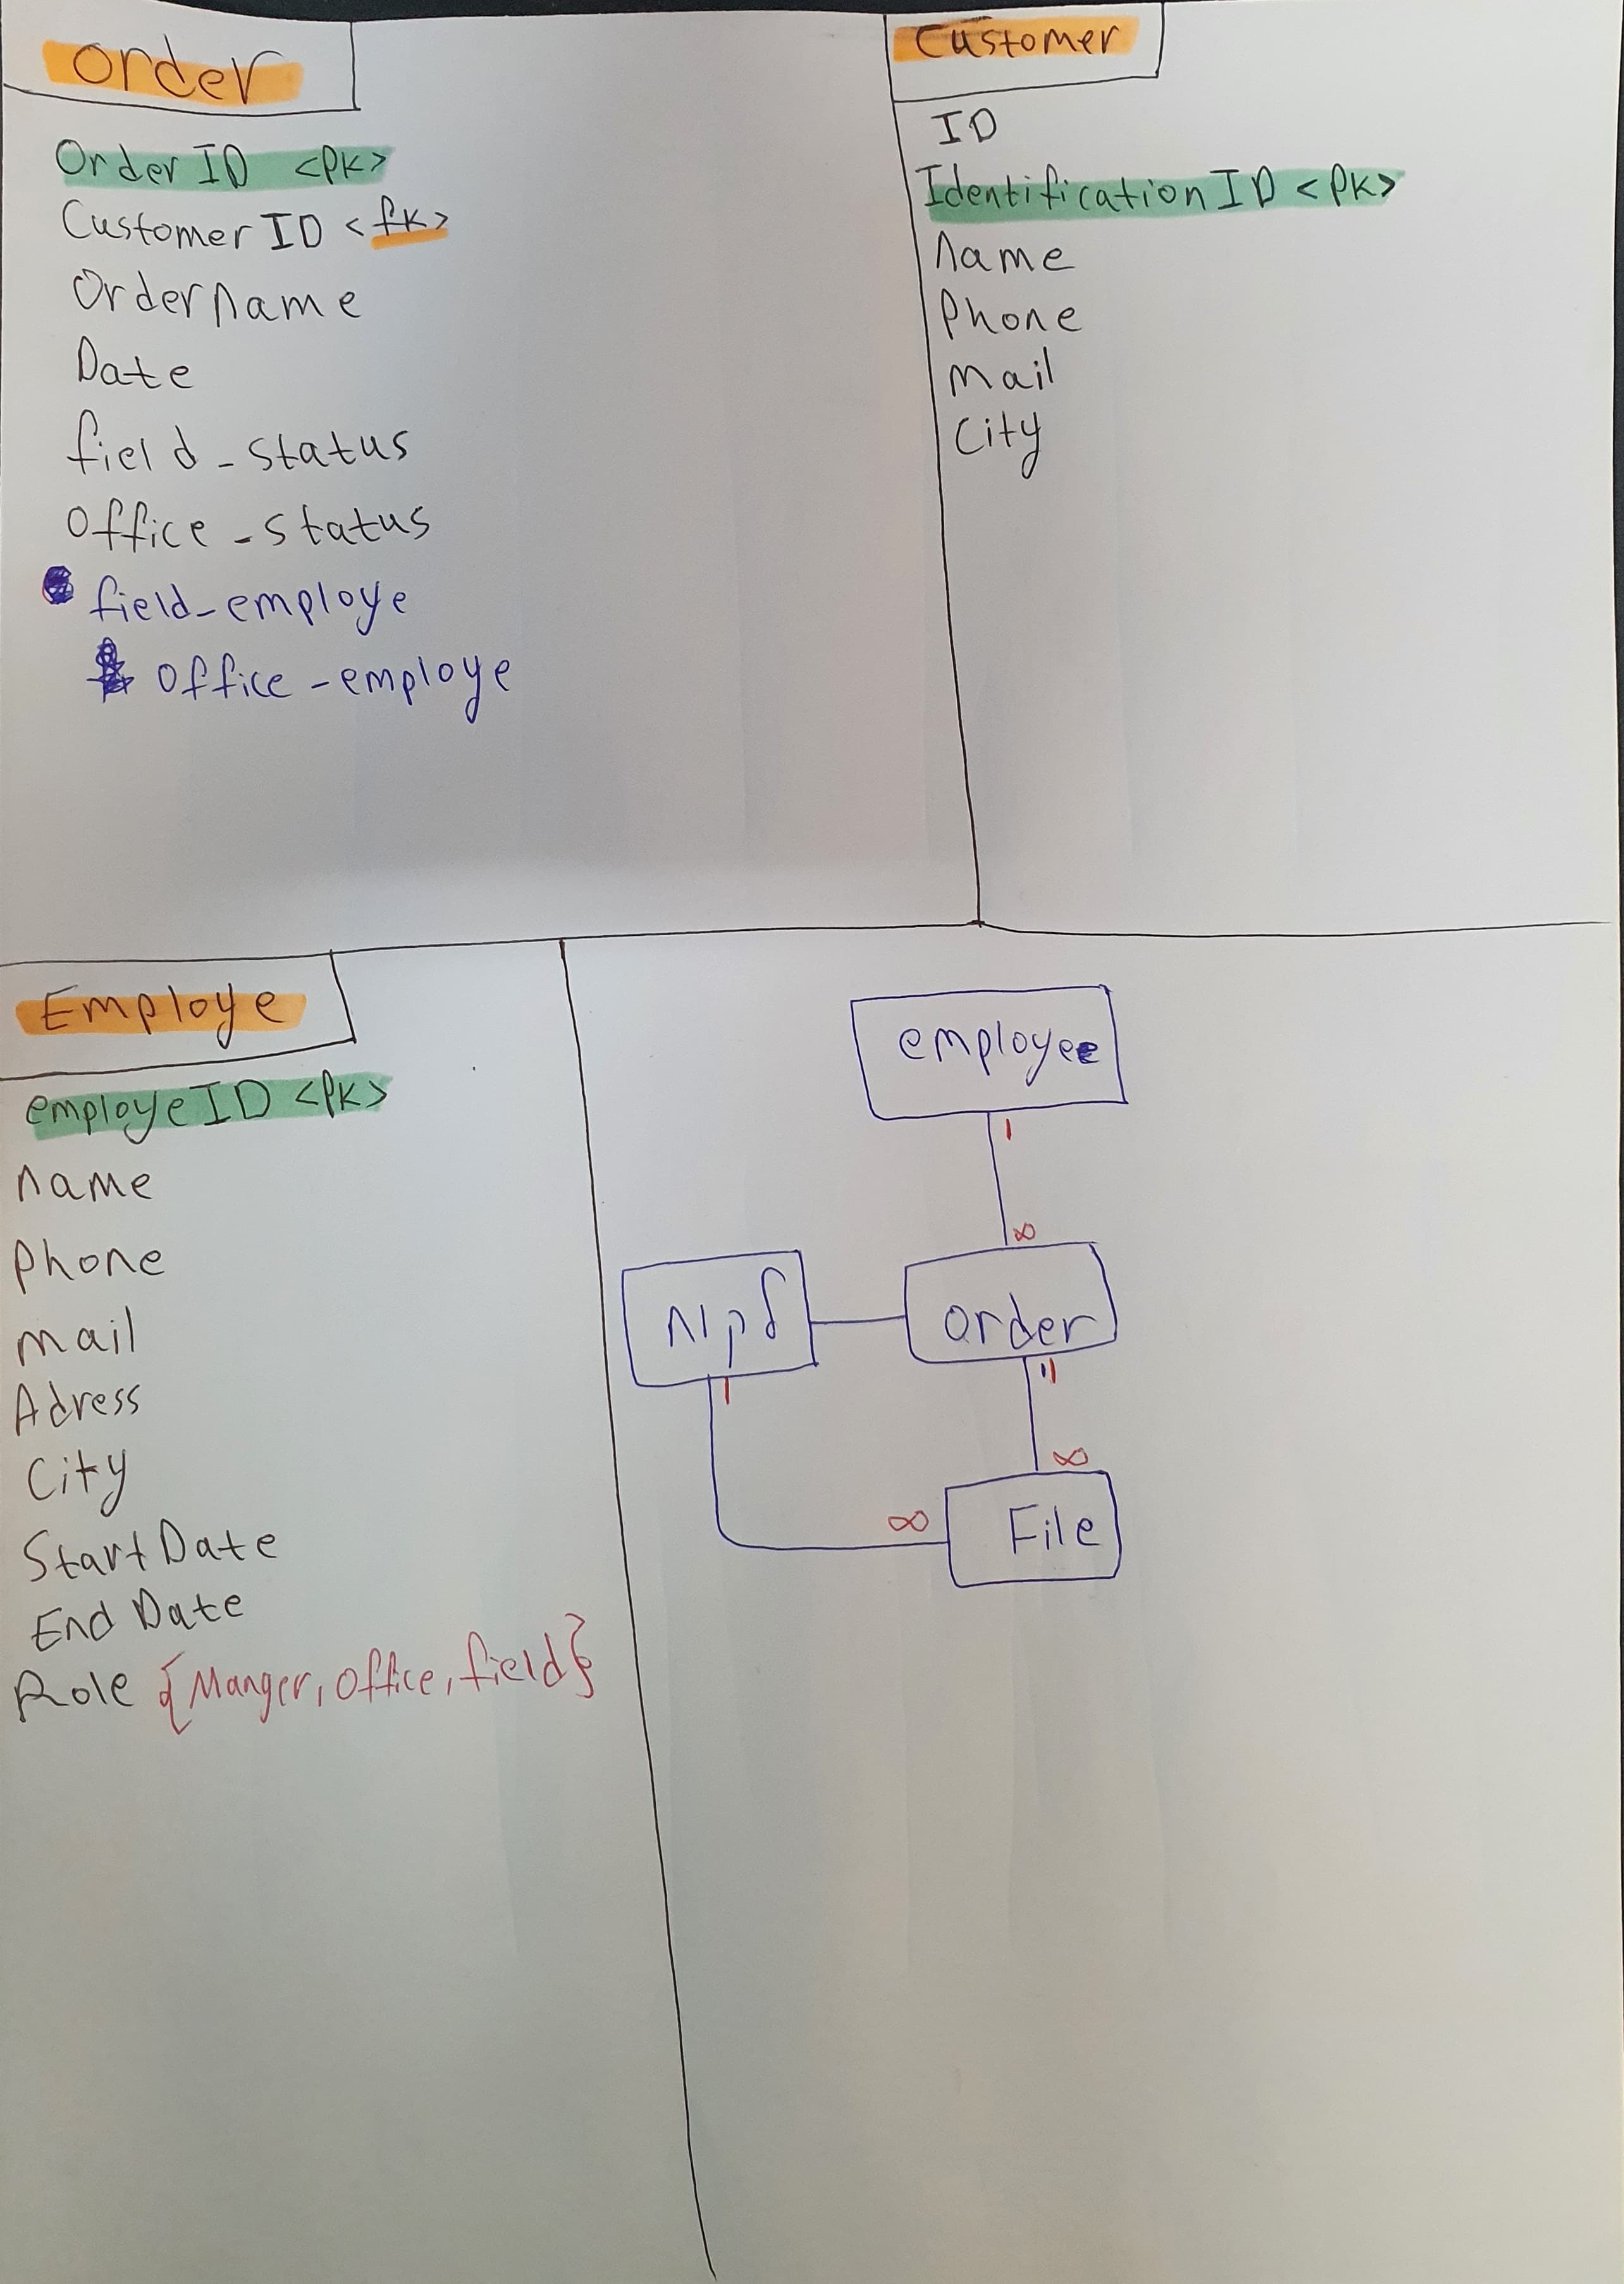 Order
OrderID <Pk>
CustomerID <fk>
Ordername
Date
field_status
Office_status
field_employe
Office_employe
Customer
ID
IdentificationID <Pk>
name
Phone
mail
City
Employe
employeID <Pk>
name
Phone
mail
Adress
City
StartDate
End Date
Role {Manger, Office, field}
employee
1
∞
לקוח
order
1
1
∞
∞
File